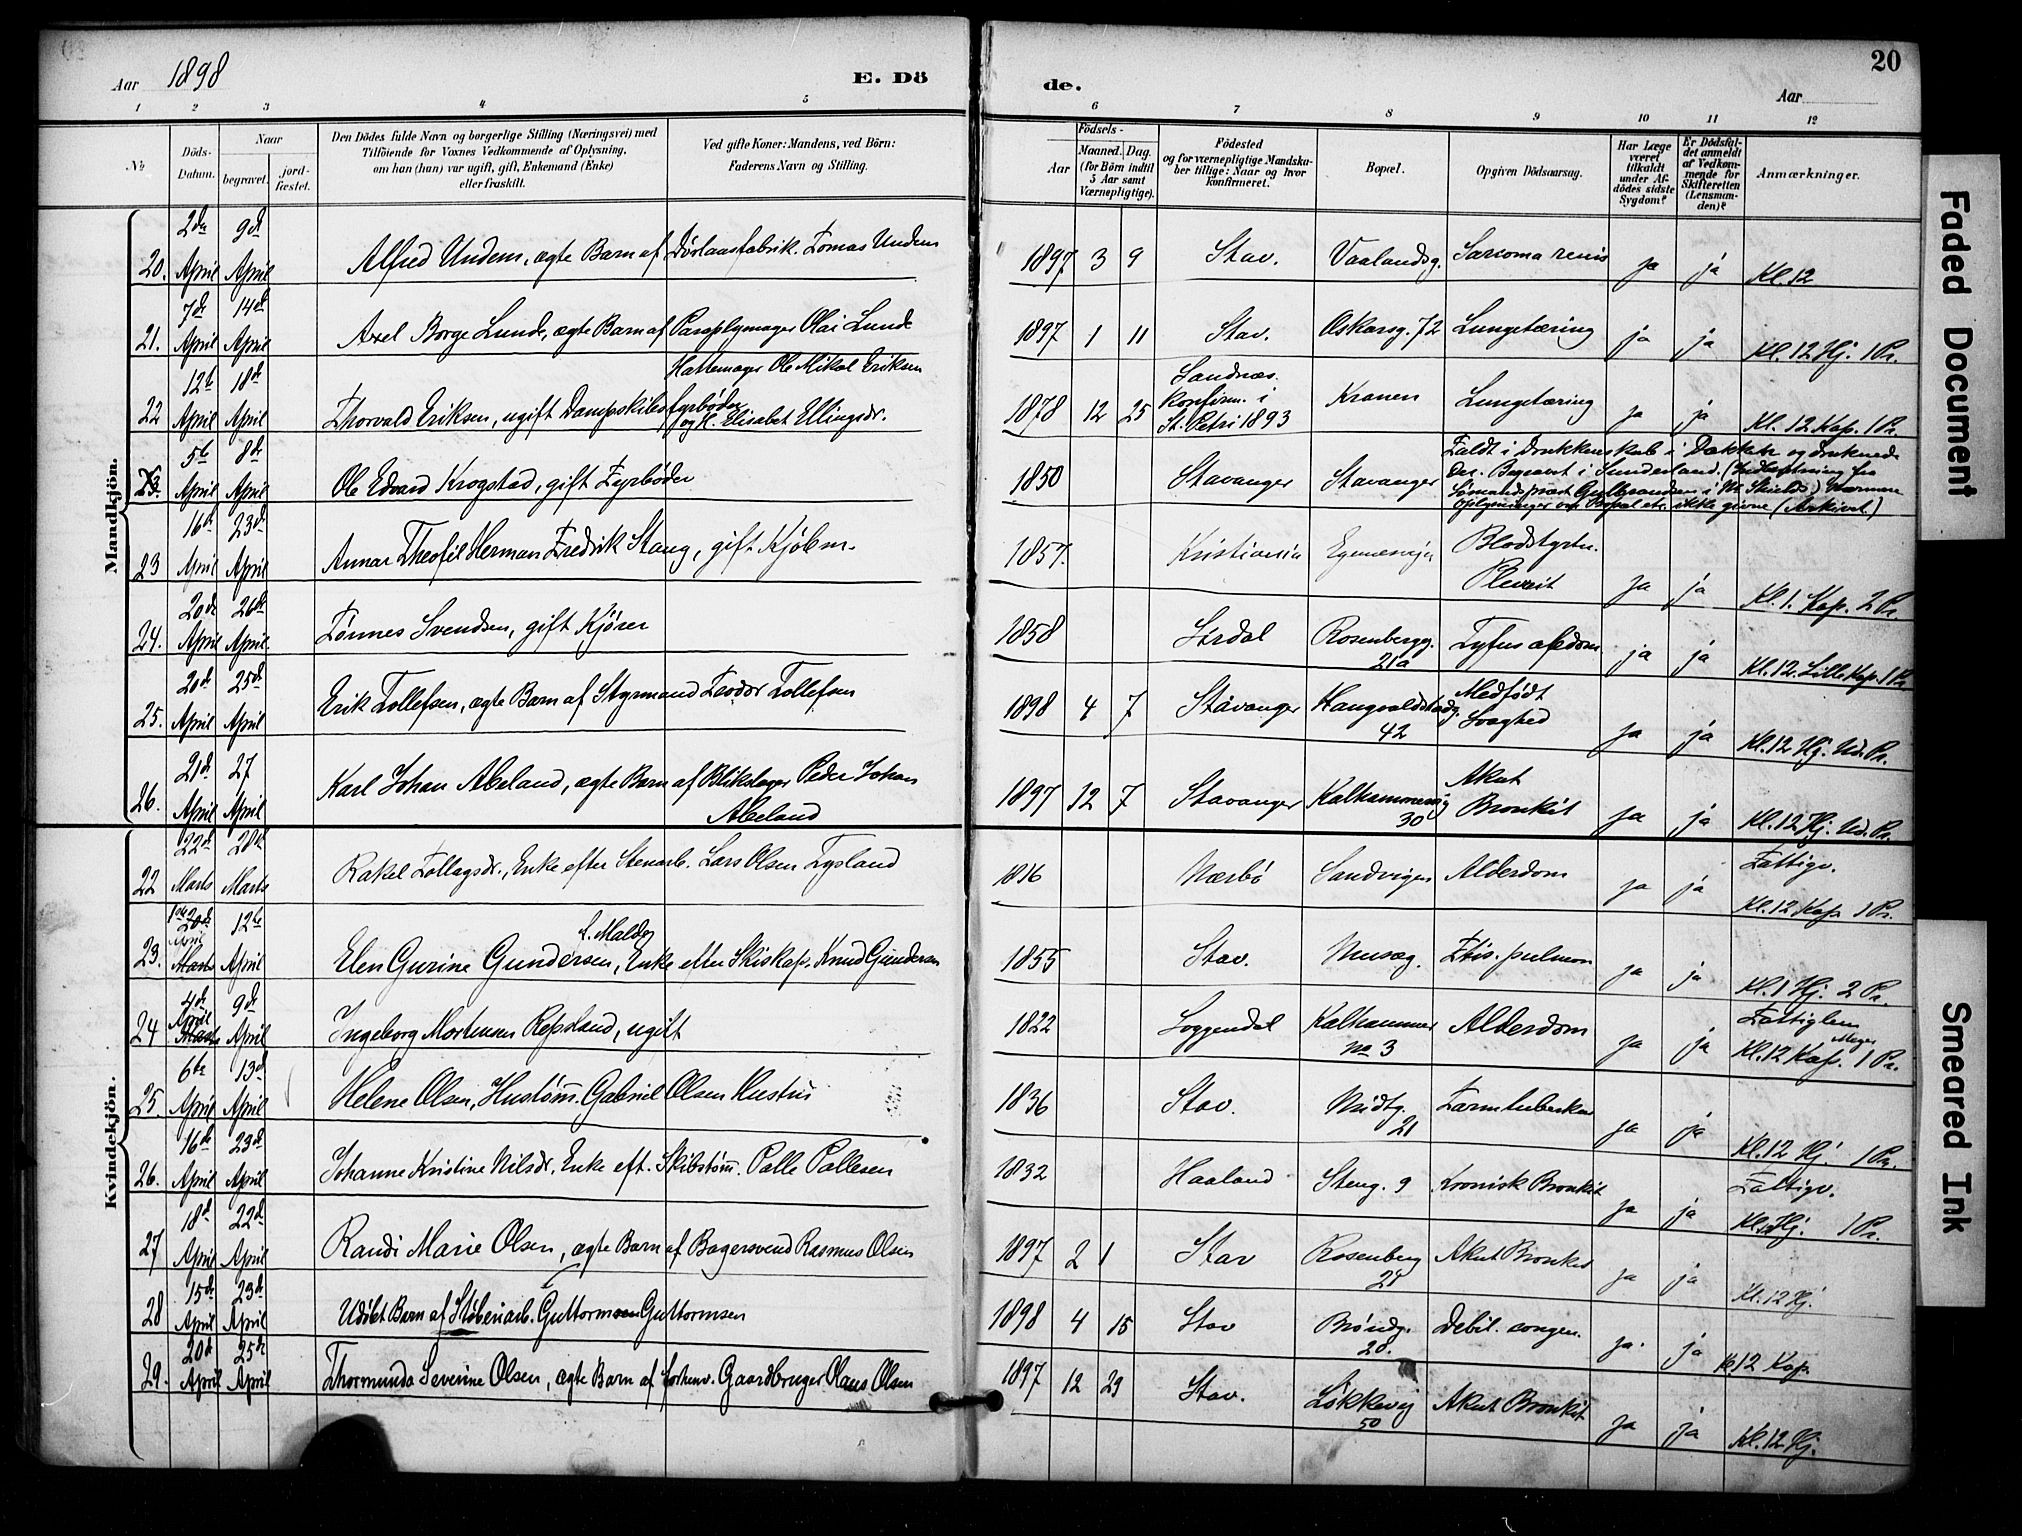 Aar 1898
E. Dö
de.
Aar
20
1 2 3 4 5 6 7 8 9 10 11 12
№
Döds-Datum.
Naar
begravet.
jord-fæstet.
Den Dödes fulde Navn og borgerlige Stilling (Næringsvei) med
Tilföiende for Voxnes Vedkommende af Oplysning,
om han (hun) var ugift, gift, Enkemand (Enke)
eller fraskilt.
Ved gifte Koner: Mandens, ved Börn:
Faderens Navn og Stilling.
Födsels-
Aar
Maaned.
Dag.
(for Börn indtil
5 Aar samt
Værnepligtige).
Födested
og for værnepligtige Mandska-
ber tillige: Naar og hvor
konfirmeret.
Bopæl.
Opgiven Dödsaarsag.
Har Læge
været
tilkaldt
under Af-
dödes sidste
Sygdom?
Er Dödsfal-
det anmeldt
af Vedkom-
mende for
Skifteretten
(Lensman-
den)?
Anmærkninger.
Mandkjön.
20. 2den April 9de April Alfred Undem, ægte Barn af Tomas Undem 1897 3 9 Stav. Vaalandsg. Sarcoma renis ja ja Kl. 12
21. 7de April 14de April Axel Borge Lunde, ægte Barn af Paraplymager Olai Lunde 1897 1 11 Stav. Oskarsg. 72 Lungetæring ja ja Kl. 12 Hj. 1 Pr.
Hattemager Ole Mikal Eriksen
22 12te April 18de April Thorvald Eriksen, ugift Dampskibsfyrbøder og H. Elisabet Ellingsdr. 1878 12 25 Sandnæs. Konfirm. i St. Petri 1893 Kranen Lungetæring ja ja Kl. 12 Kap. 1 Pr.
23. 5te April 8de April Ole Edvard Krogstad, gift Fyrbøder 1850 Stavanger Stavanger Faldt i Drukkenskab i Dækket og druknede
der. Begravet i Sunderland. (Indberetning fra
Sømandspræst Gulbrandsen i Nt Shields) Nærmere
Oplysninger om Bopæl etc. ikke givne (Arkivet)
23 16de April 23de April Annar Theofil Herman Fredrik Stang, gift Kjøbm. 1857. Kristiania Egenæsvejen Blodstyrtn. Plevrit ja ja Kl. 1. Kap. 2 Pr.
24. 20de April 26de April Tønnes Svendsen, gift Kjører 1858 Sirdal Rosenbergg. 21a Tyfus abdom. ja ja Kl. 12. Lille Kap. 1 Pr
25. 20de April 25de April Erik Tollefsen, ægte Barn af Styrmand Teodor Tollefsen 1898 4 7 Stavanger 42 Medfödt Svaghed ja ja Kl. 12 Hj. Ud. Pr.
26. 21de April 27 April Karl Johan Abeland, ægte Barn af Blikslager Peder Johan
Abeland 1897 12 7 Stavanger Kalhammervig 30 Akut Bronkit ja ja Kl. 12 Hj. Ud. Pr.
Kvindekjön.
22 22de Marts 28de Marts Rakel Tollagsdr., Enke efter Stenarb. Lars Olsen Tysland 1816 Nærbö Sandvigen Alderdom ja ja Fattigv. Kl. 12 Kap 1 Pr.
23. 1ste 20de April Marts 12te April Elen Gurine Gundersen, f. Malde, Enke efter Skiskap. Knud Gundersen 1855 Stav. Musæg. Ftis. pulmon ja ja Kl. 1 Hj. 2 Pr.
24 4de April Marts 9de April Ingeborg Mortensen Repsland, ugift 1822 Soggendal Kalhammer no 3 Alderdom ja ja Fattiglem Kl. 12 Kap. 1 Pr.
25. 6te April 13de April Helene Olsen, Hustømm. Gabriel Olsen Hustru 1836 Stav. Nidtg. 21 Tarmtuberkul ja ja Kl. 12 Hj. 1 Pr.
26. 16de April 23de April Johanne Kristine Nilsdr, Enke eft. Skibstømm. Palle Pallesen 1832 Haaland Steng. 9 Kronisk Bronkit ja ja Fattigv. Kl. 12 Hj. 1 Pr.
27 18de April 22de April Randi Marie Olsen, ægte Barn af Bagersvend Rasmus Olsen 1897 2 1 Stav Rosenberg 21 Akut Bronkit ja ja Kl. 12 Hj.
28 15de April 23de April Udöbt Barn af Støberiarb. Guttorm Guttormsen 1898 4 15 Stav Brøndg. 20. Debil. congen. ja. ja Kl. 12 Kap.
29. 20de April 25de April Thormunda Severine Olsen, ægte Barn af forhenv. Gaardbruger Olaus Olsen 1897 12 29 Stav. Løkkevej 50 Akut Bronkit ja ja Kl. 12 Hj.
Faded Document
Smeared Ink